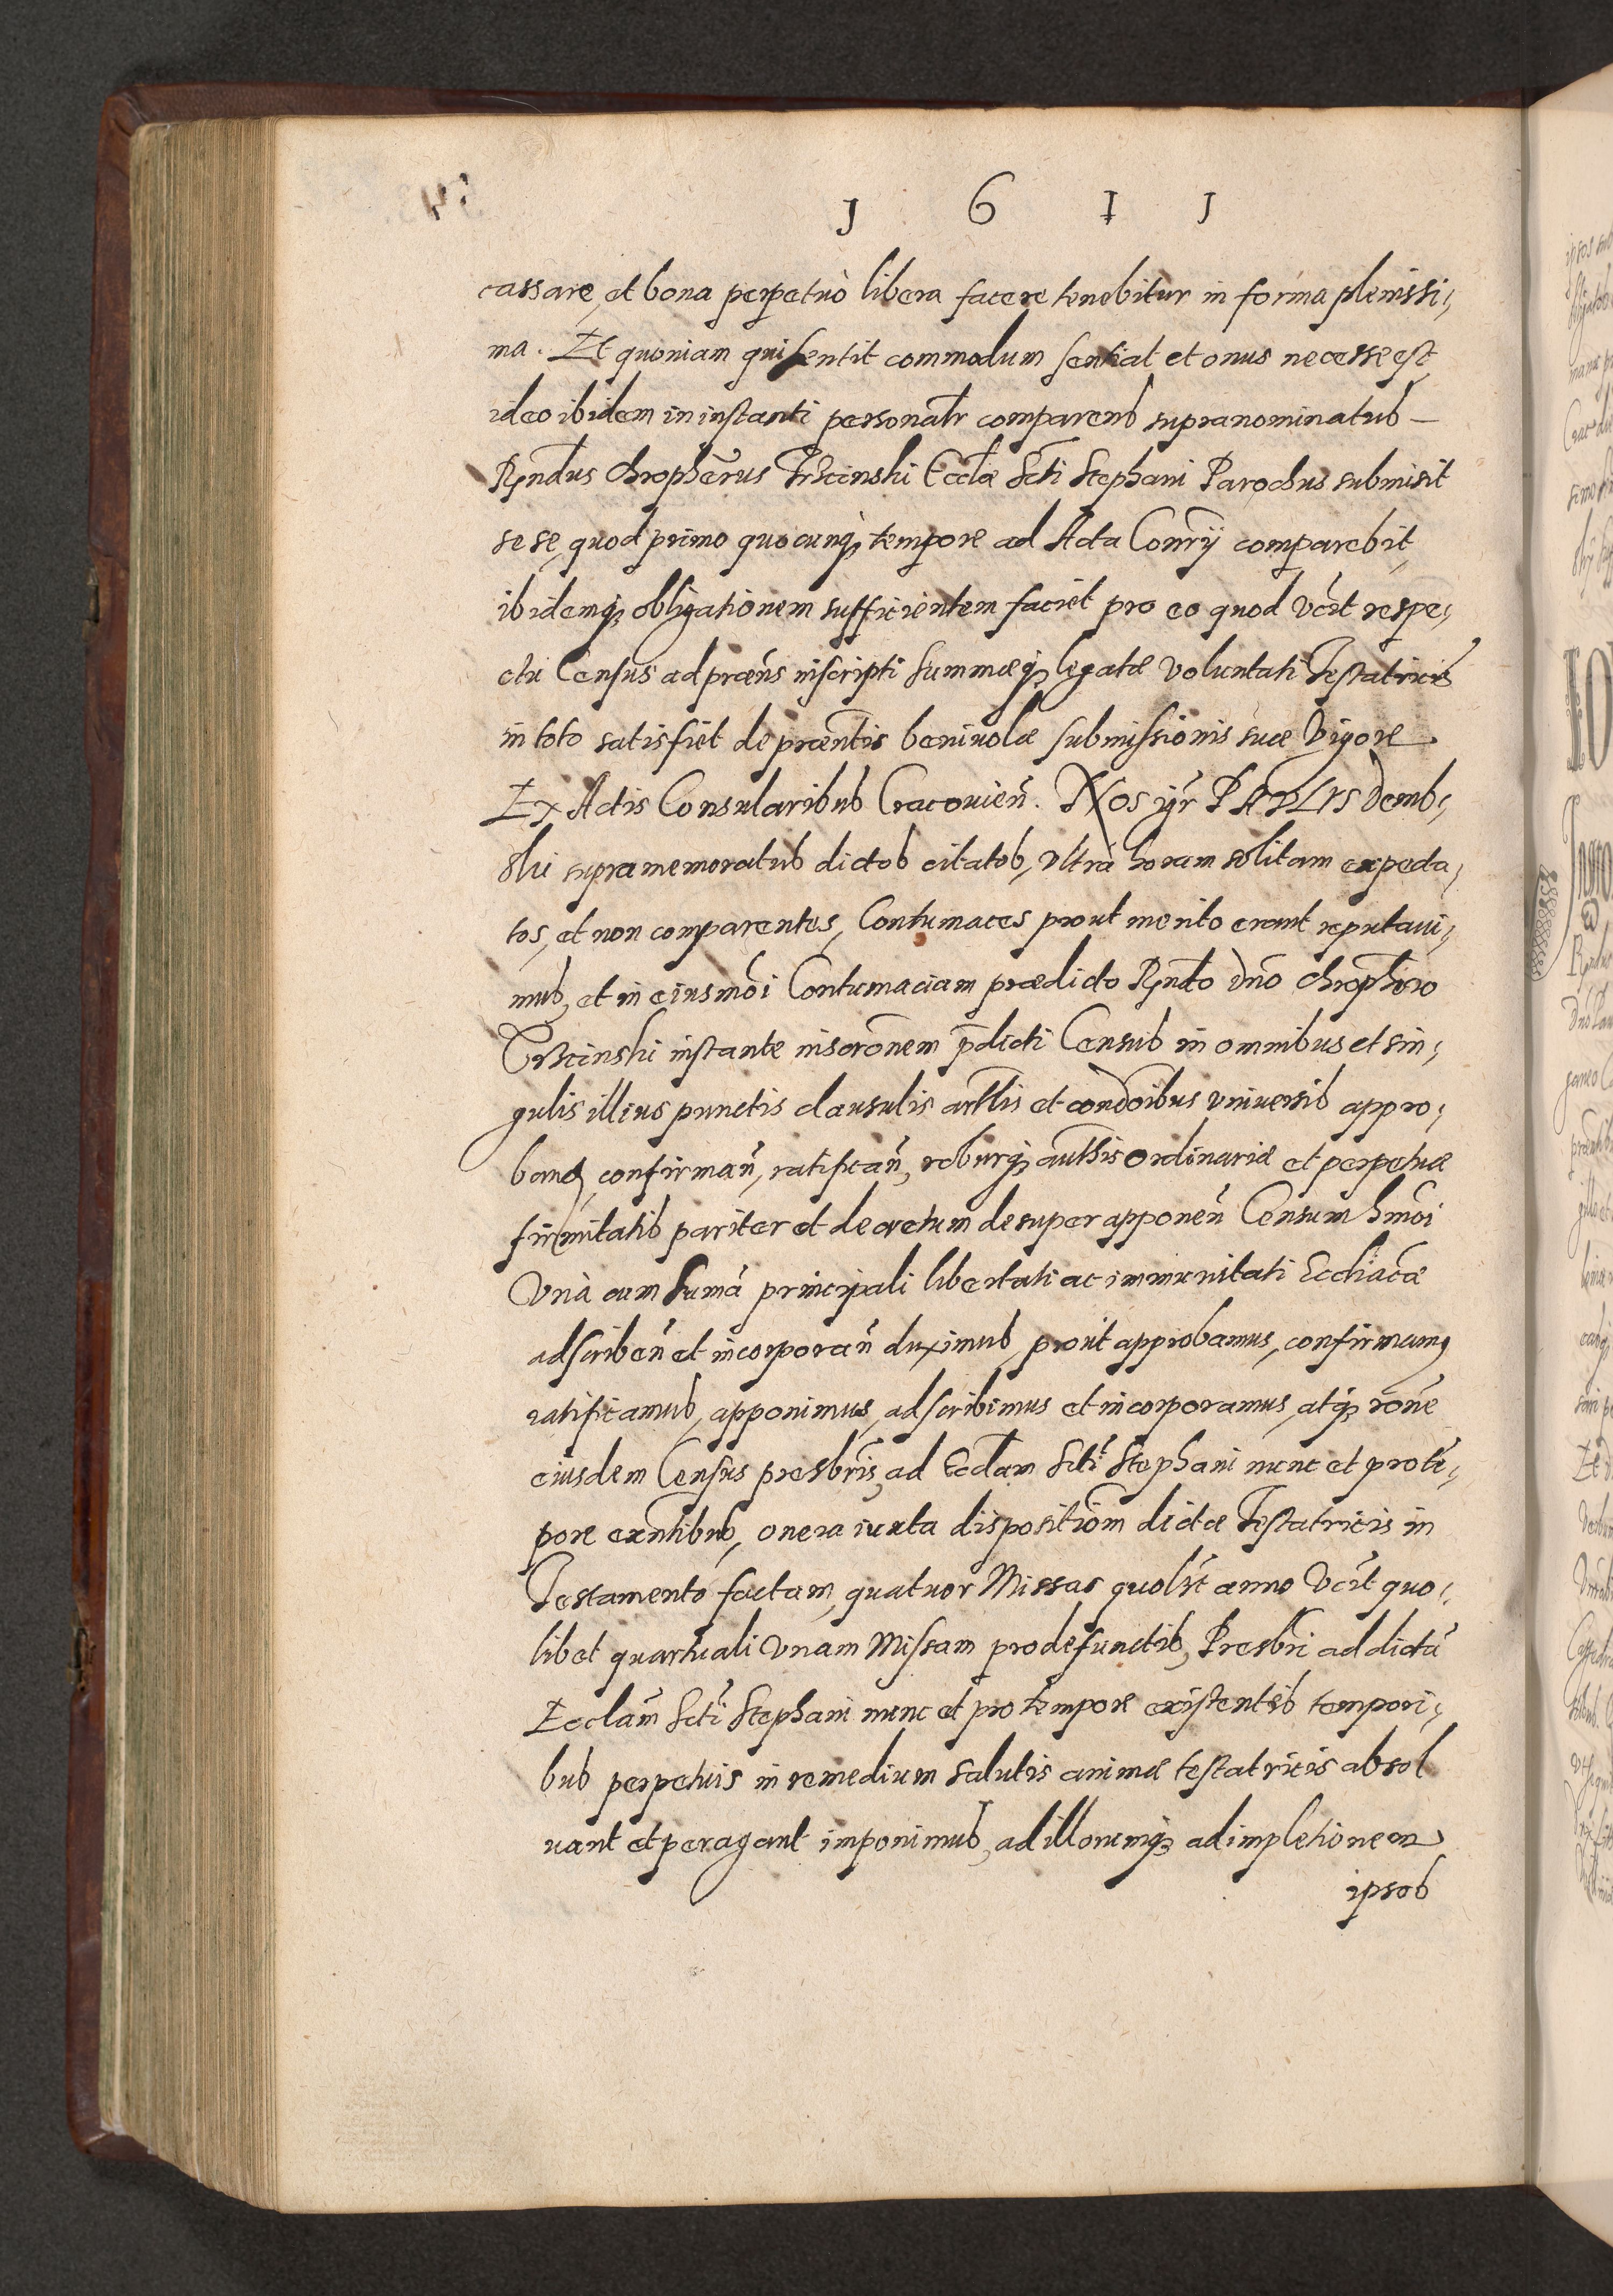 1 6 1 1
cassare, et bona perpetuò libera facere tenebitur in forma plenissi,
ma. Et quoniam qui sentit commodum sentiat et onus necesse est
ideo ibidem in instanti personalr comparens supranominatus
Rndus Chropherus Trscinski Ecclae Scti Stephani Parochus submisit
se se, quod primo quocunq tempore ad Acta Consrij comparebit,
ibidemq obligationem sufficientem faciet pro eo quod vczt respe,
ctu Census ad praens inscripti summaeq legatae voluntati Testatricis
in toto satisfiet de praentis benivolae submissionis suae vigore
Ex Actis Consularibus Cracovien. Nos igr PAVLVS Demb,
ski supramemoratus dictos citatos, vltrà horam solitam expecta,
tos, et non comparentes, Contumaces prout merito erant reputaui,
mus, et in eiusmoi Contumaciam praedicto Rndo Dno Chrophero
Trscinski instante inscronem pdicti Census in omnibus et sin,
gulis illius punctis clausulis artlis et condoibus vniuersis appro,
band, confirman, ratifican, roburq authtis ordinariae et perpetuae
firmitatis pariter et decretum desuper apponen Censum hmoi
Vnà cum suma principali libertati ac immunitati Eccliacae
adscriben et incorporan duximus, prout approbamus, confirmamus
ratificamus, apponimus, adscribimus et incorporamus, atq rone
eiusdem Census presbris, ad Ecclam Scti Stephani nunc et pro te,
pore exntibus, onera iuxta dispositiom dictae Testatricis in
Testamento factam, quatuor Missas quolt anno vczt quo,
libet quartuali vnam Missam pro defunctis, Presbri ad dictā
Ecclam Scti Stephani nunc et pro tempore existentes tempori,
bus perpetuis in remedium salutis animae testatricis absol
uant et peragant imponimus, ad illorumq adimpletionem
ipsos